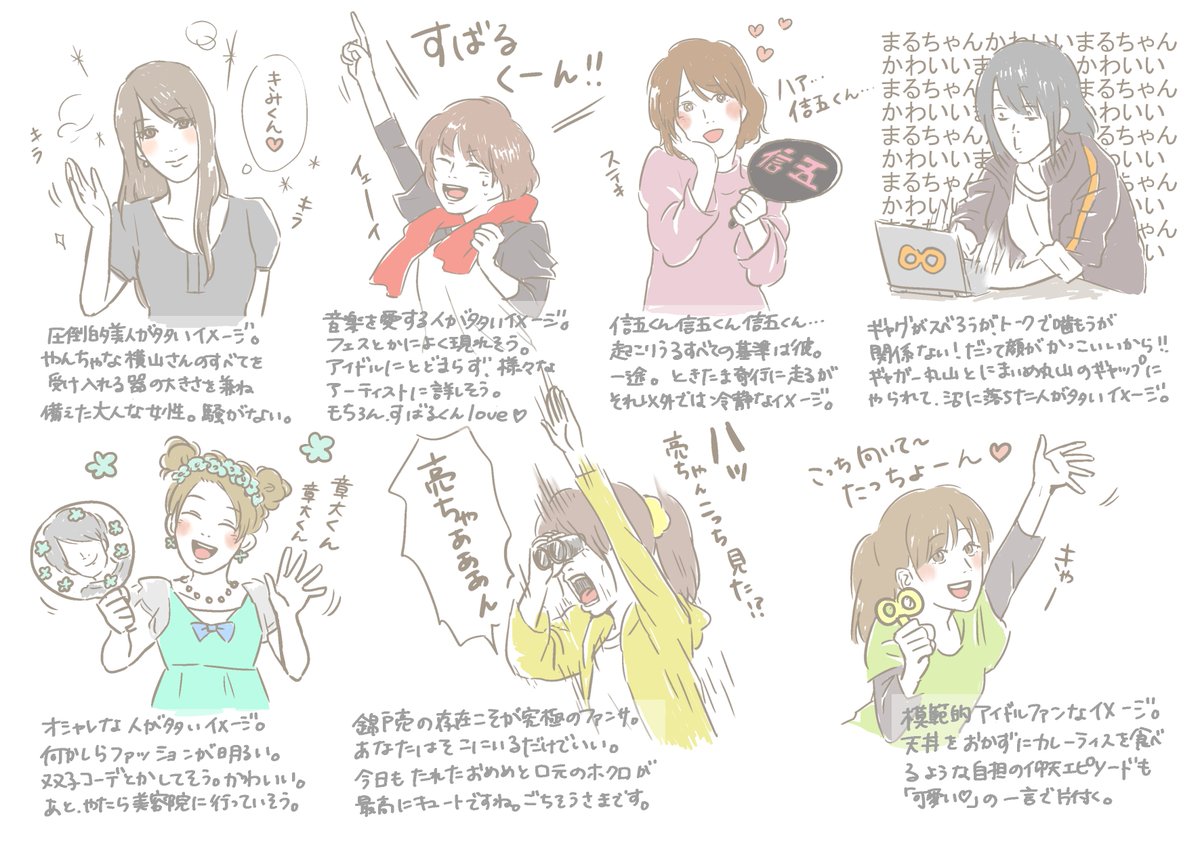 きみくん♡
キラ
キラ
圧倒的美人が多いイメージ。
やんちゃな横山さんのすべてを
受け入れる器の大きさを兼ね
備えた大人な女性。騒がない。
すばる
くーん!!
イェーイ
音楽を愛する人が多いイメージ。
フェスとかによく現れそう。
アイドルにとどまらず、様々な
アーティストに詳しそう。
もちろん、すばるくんlove♡
ハァ…
信五くん…
ステキ
信五
信五くん信五くん信五くん…
起こりうるすべての基準は彼。
一途。ときたま奇行に走るが
それ以外では冷静なイメージ。
まるちゃんかわいいまるちゃん
かわいいま かわいい
まるちゃん まるちゃん
かわいい かわいい
まるちゃん まるちゃん
かわいいま かわいい
まるちゃん ちゃん
かわいい いい
まるちゃん ん
い
ギャグがスベろうが、トークで噛もうが
関係ない!だって顔がかっこいいから!!
ギャガー丸山とにまいめ丸山のギャップに
やられて、沼に落ちた人が多いイメージ。
章大くん
章大くん
オシャレな人が多いイメージ。
何かしらファッションが明るい。
双子コーデとかしてそう。かわいい。
あと、やたら美容院に行っていそう。
亮ちゃぁぁぁん
ハッ
亮ちゃんこっち見た!?
錦戸亮の存在こそが究極のファンサ。
あなたはそこにいるだけでいい。
今日もたれたおめめと口元のホクロが
最高にキュートですね。ごちそうさまです。
こっち向いて〜
たっちょーん♡
キャー
模範的アイドルファンなイメージ。
天丼をおかずにカレーライスを食べ
るような自担の仰天エピソードも
「可愛い♡」の一言で片付く。